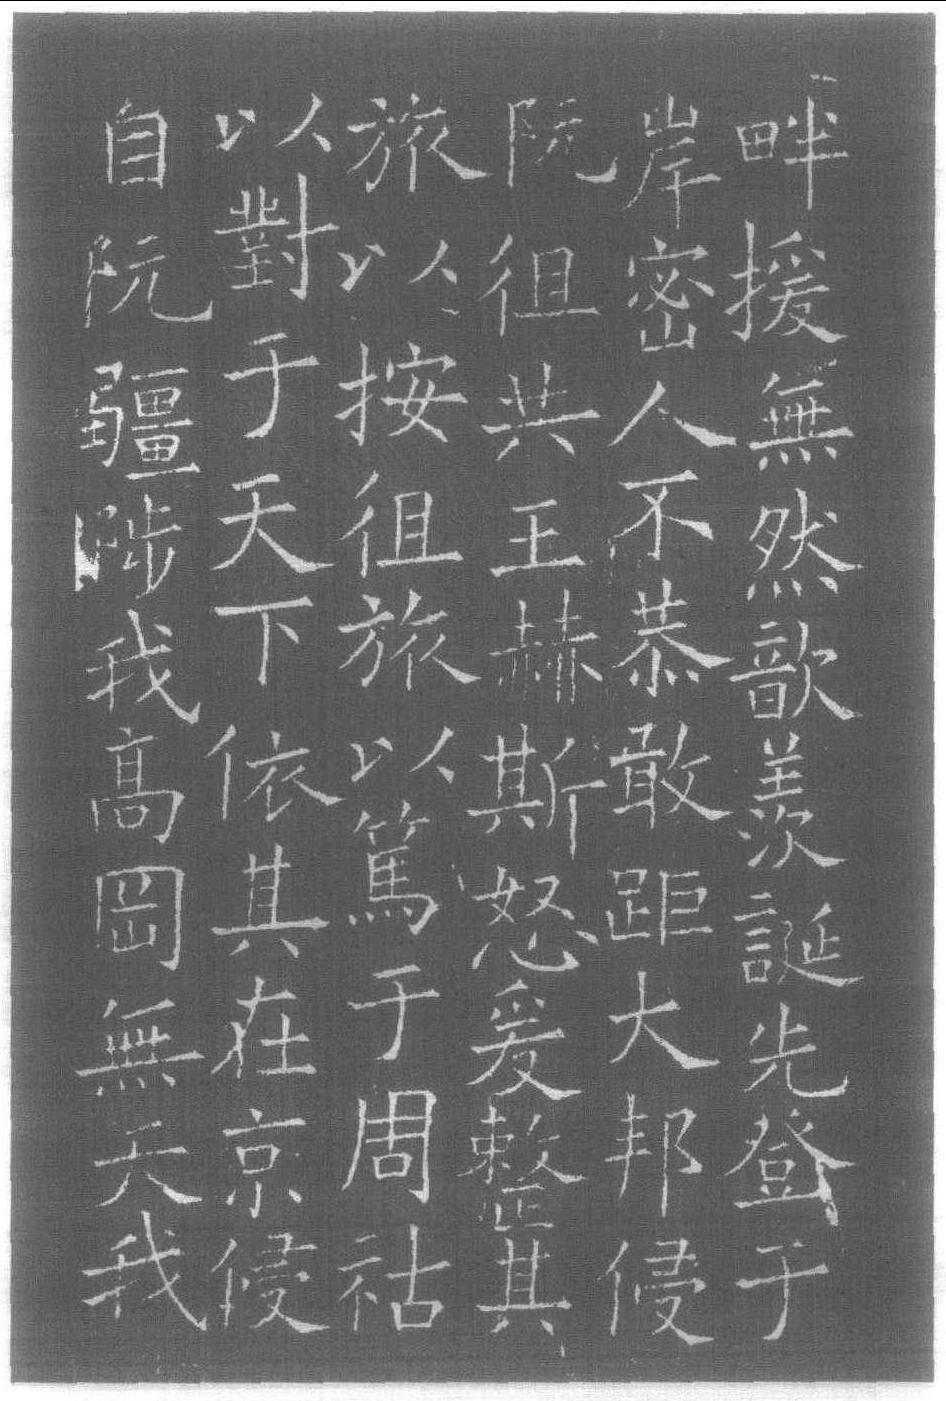 畔援無然歆羨誕先登于
岸密人不恭敢距大邦侵
阮徂共王赫斯怒爰整其
旅以按徂旅以篤于周祜
以對于天下依其在京侵
自阮疆陟我高岡無矢我